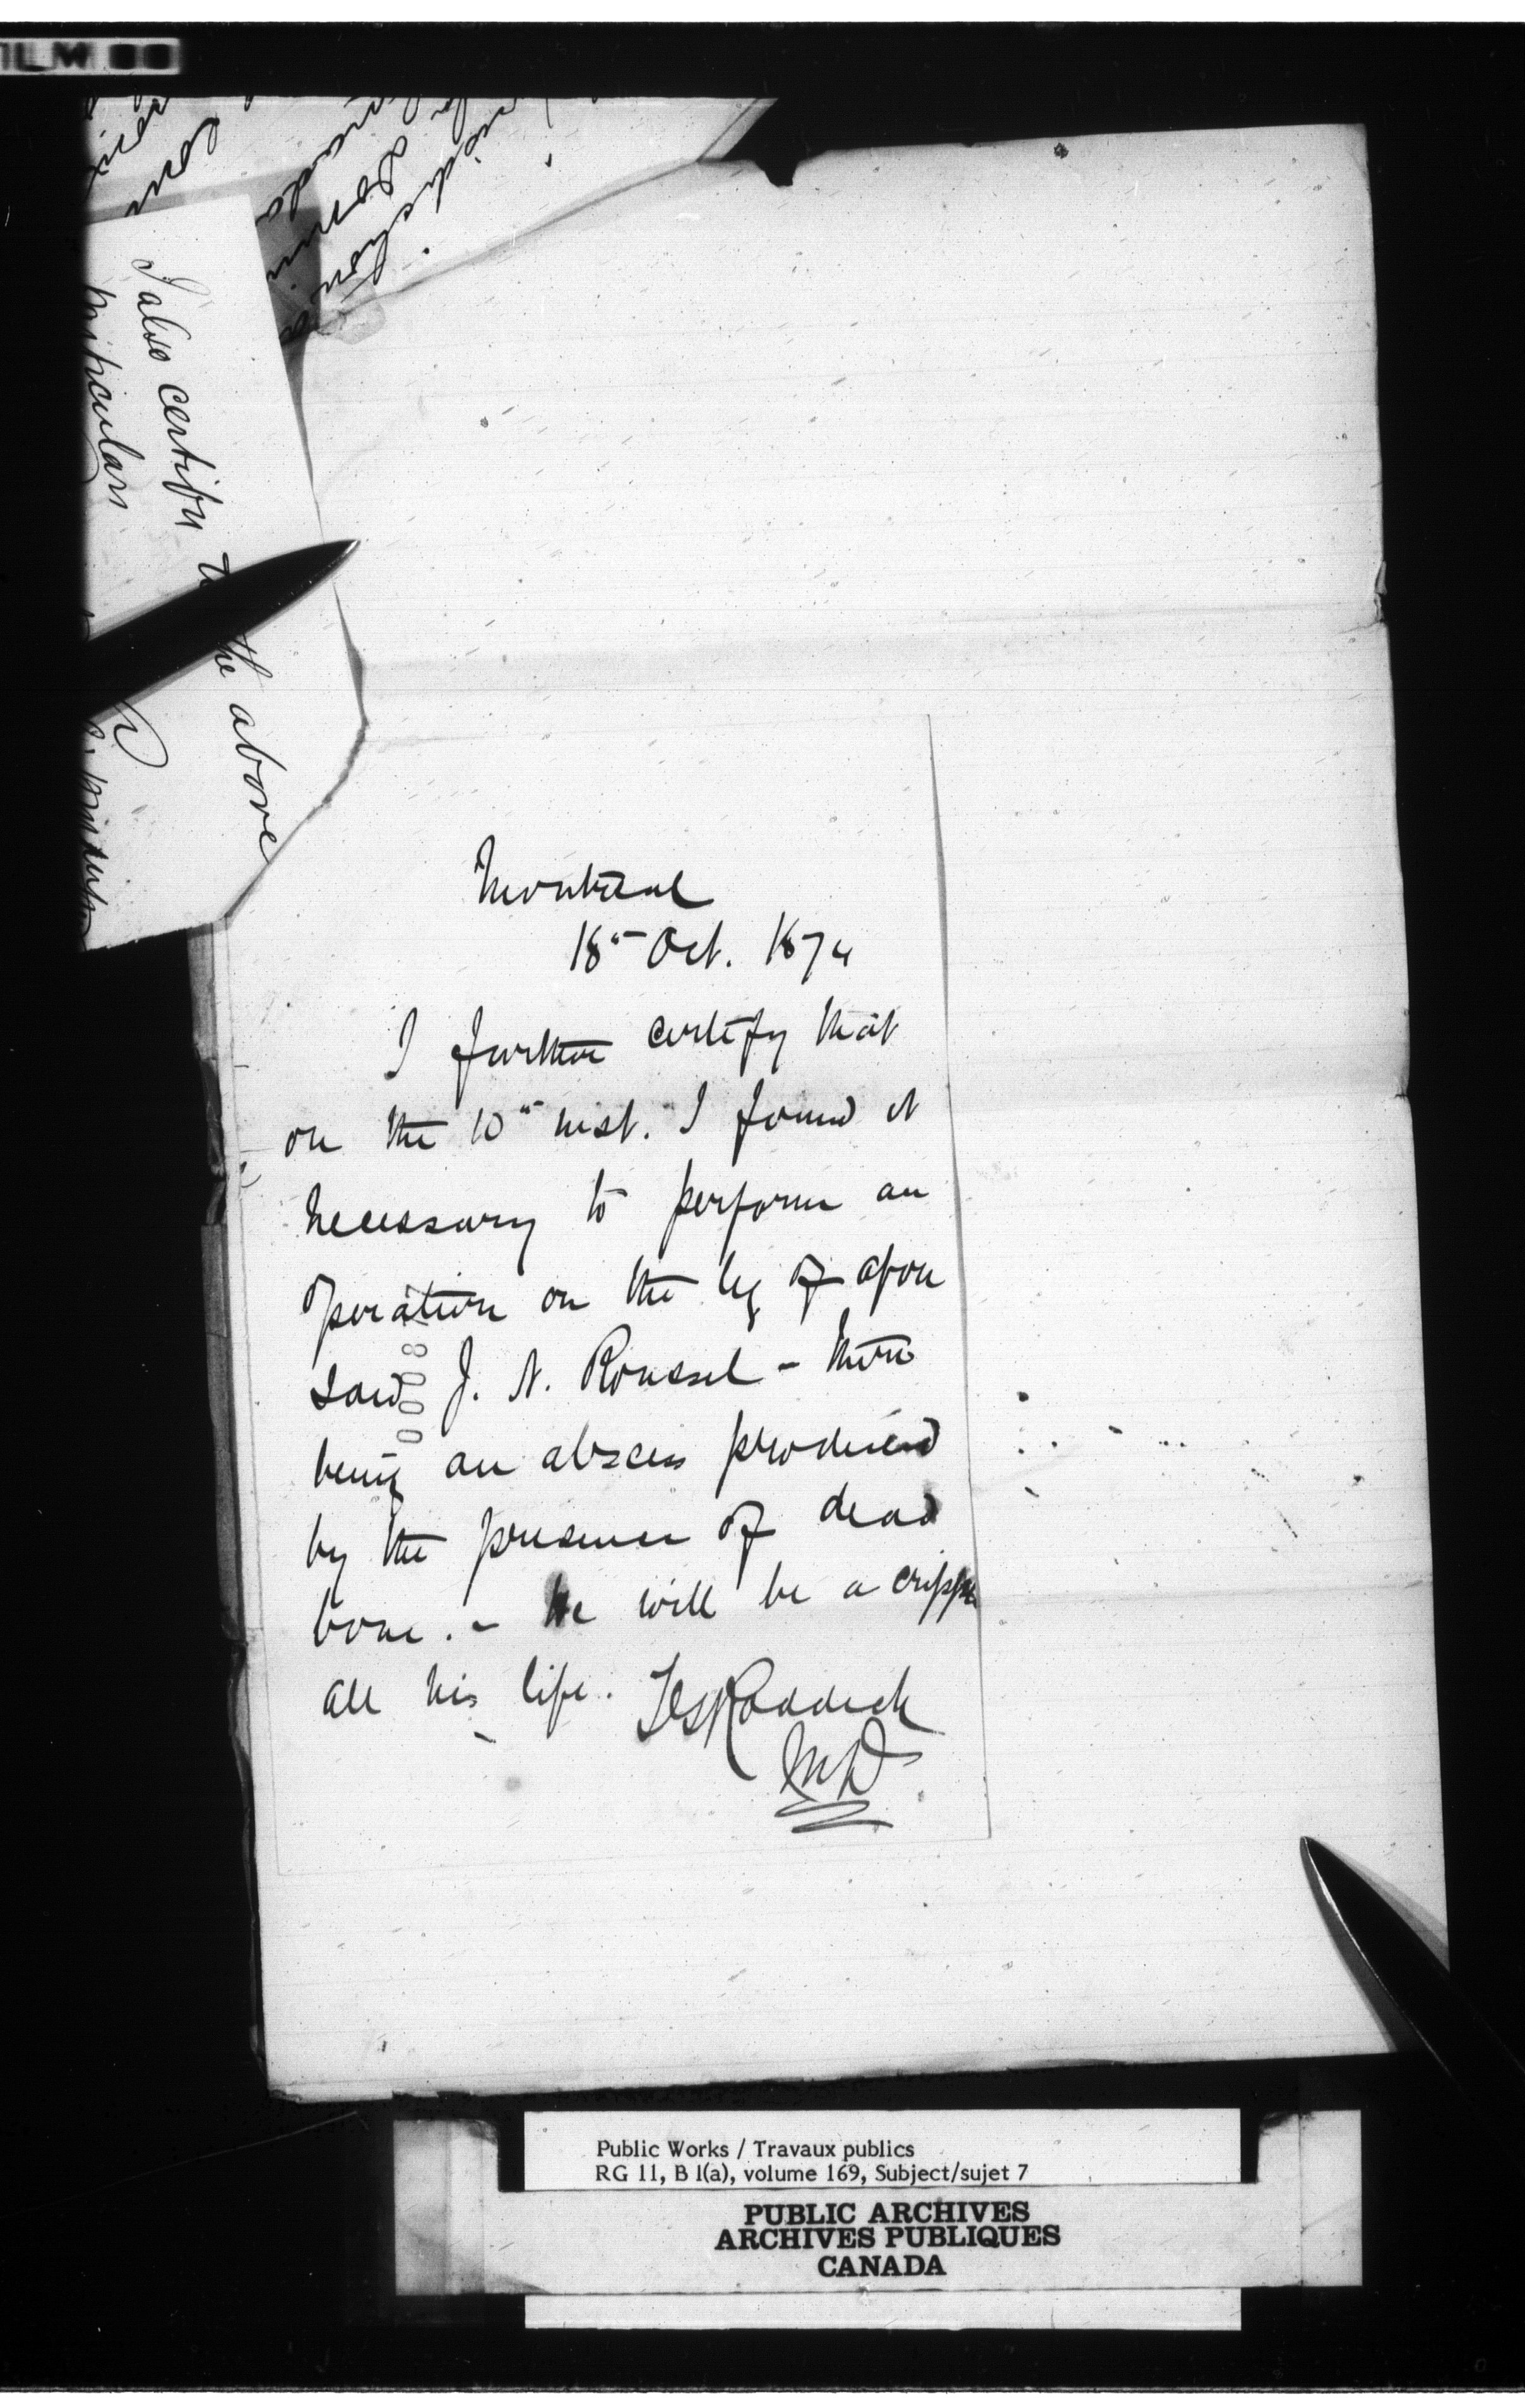 I also certify to the above
particulars
Montreal
18th Oct. 1874
I further certify that
on the 10th inst. I found it
necessary to perform an
operation on the leg of afore
said J. N. Roussel - there
being an abscess produced
by the presence of dead
bone. - He will be a cripple
all his life. T G Roddick
MD
Public Works / Travaux publics
RG 11, B 1(a), volume 169, Subject/sujet 7
PUBLIC ARCHIVES
ARCHIVES PUBLIQUES
CANADA